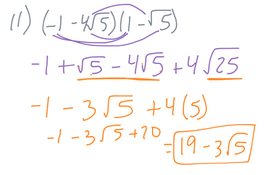 11) (-1 - 4√5)(1 - √5)
-1 + √5 - 4√5 + 4√25
-1 - 3√5 + 4(5)
-1 - 3√5 + 20 = 19 - 3√5